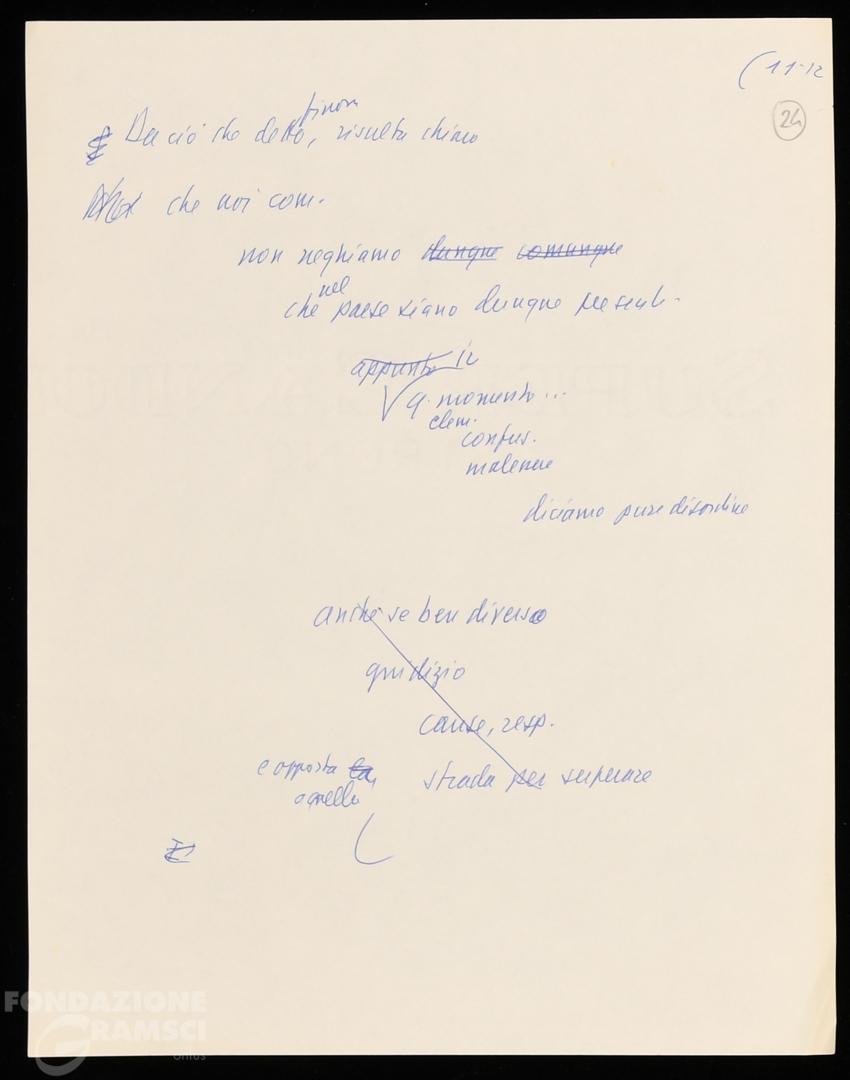 (11-12
24
finora
Da ciò che detto, risulta chiaro
che noi com.
non neghiamo dunque comunque
nel
che paese siano dunque presenti
appunto in
q. momento...
elem.
confus.
malessere
diciamo pure disordine
anche se ben diverso
giudizio
cause, resp.
e opposta la strada per superare
a quella
FONDAZIONE
GRAMSCI
onlus